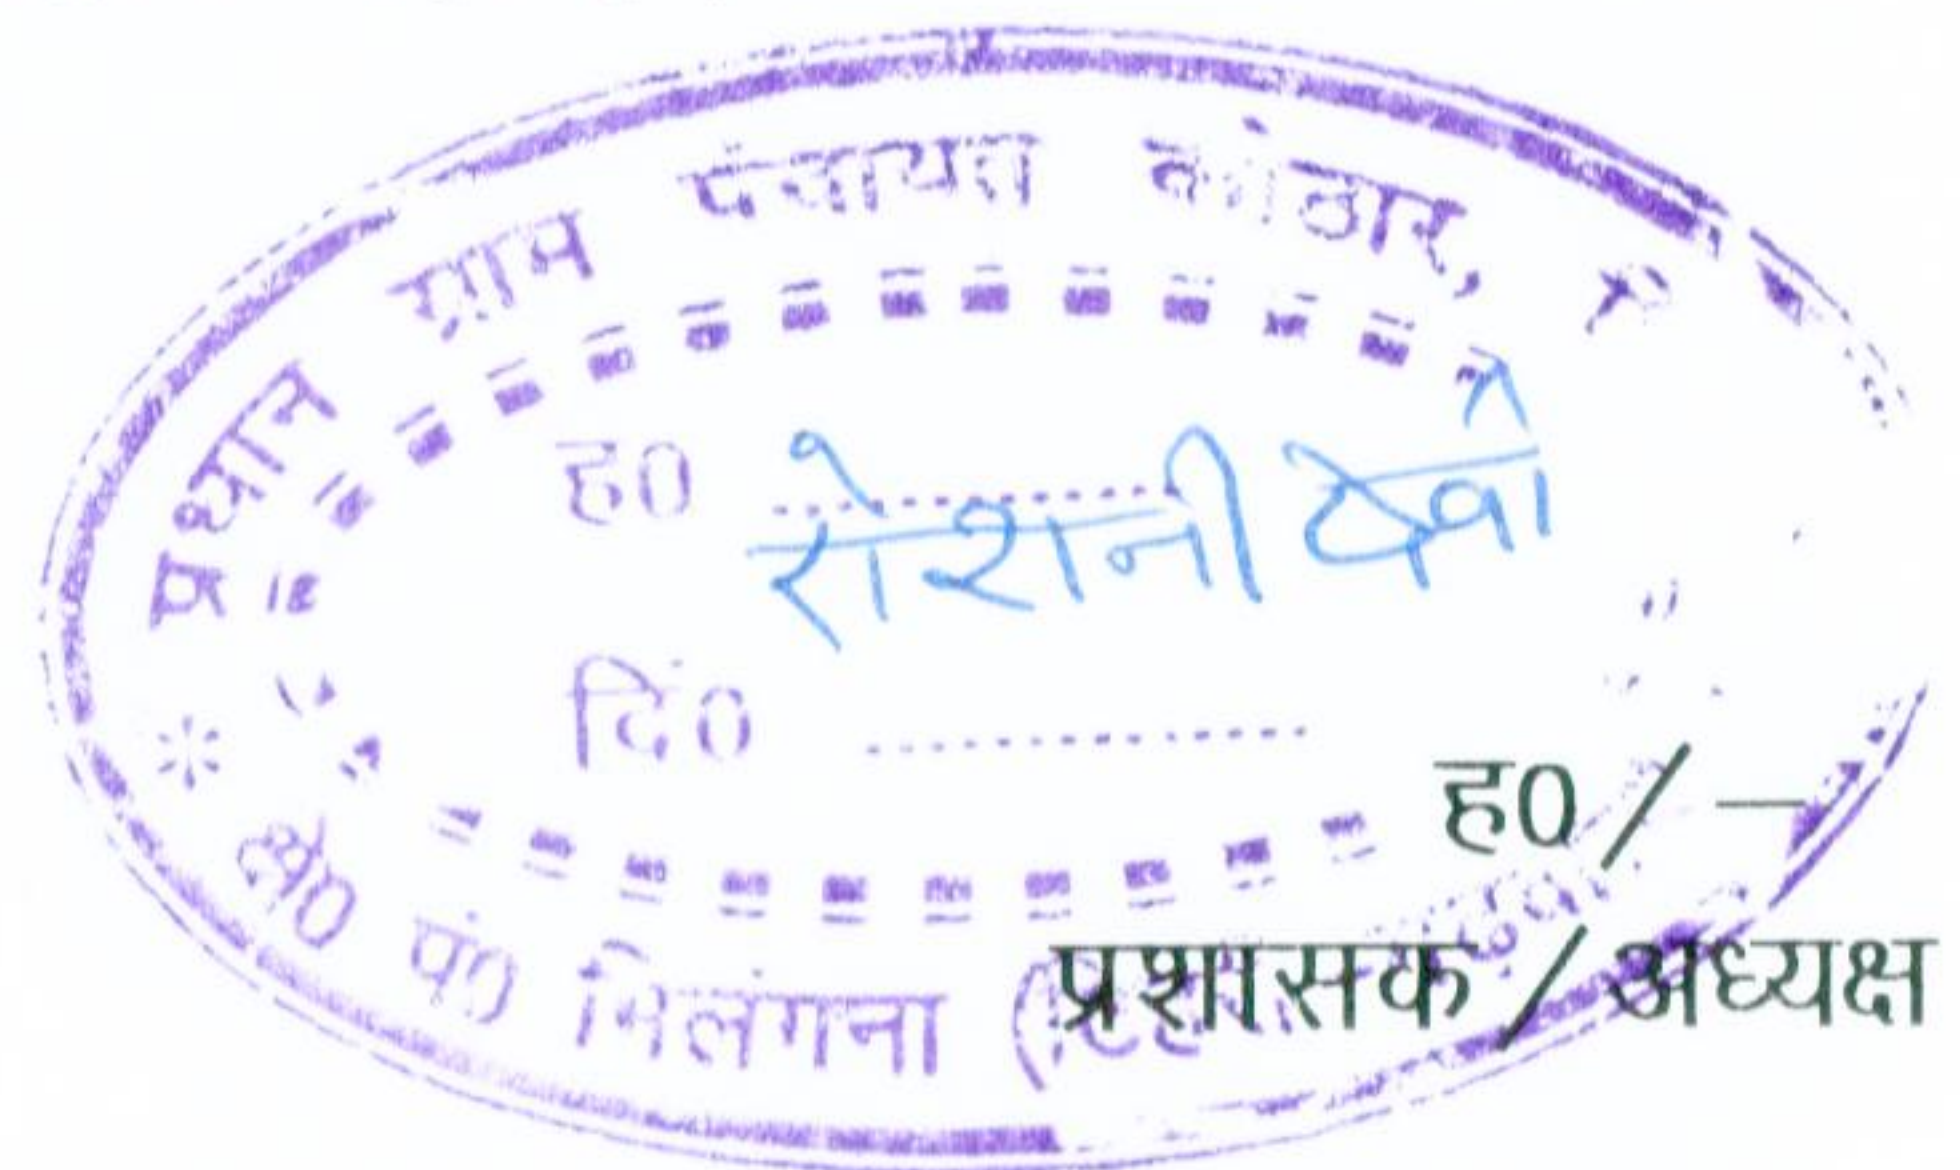 प्रधान ग्राम पंचायत कोठार,
ह0 रोशनी देवी
दिं0
ह0 / —
क्षे0 पं0 भिलंगना
प्रशासक / अध्यक्ष